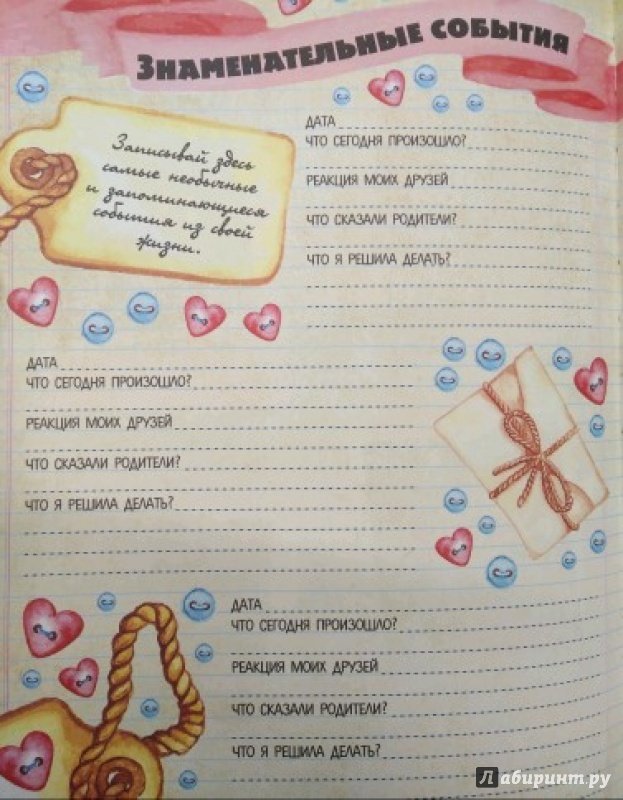 Знаменательные события
Записывай здесь
самые необычные
и запоминающиеся
события из своей
жизни.
ДАТА
ЧТО СЕГОДНЯ ПРОИЗОШЛО?
РЕАКЦИЯ МОИХ ДРУЗЕЙ
ЧТО СКАЗАЛИ РОДИТЕЛИ?
ЧТО Я РЕШИЛА ДЕЛАТЬ?
ДАТА
ЧТО СЕГОДНЯ ПРОИЗОШЛО?
РЕАКЦИЯ МОИХ ДРУЗЕЙ
ЧТО СКАЗАЛИ РОДИТЕЛИ?
ЧТО Я РЕШИЛА ДЕЛАТЬ?
ДАТА
ЧТО СЕГОДНЯ ПРОИЗОШЛО?
РЕАКЦИЯ МОИХ ДРУЗЕЙ
ЧТО СКАЗАЛИ РОДИТЕЛИ?
ЧТО Я РЕШИЛА ДЕЛАТЬ?
Лабиринт.ру